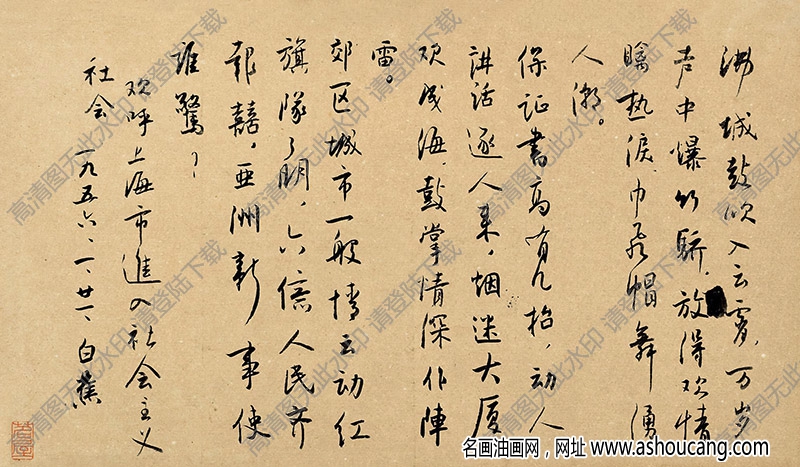 沸城鼓吹入云霄，万岁
声中爆竹骄，放得欢情
 热泪，巾飞帽舞涌
人潮。
保证书高 几抬，动人
讲话逐人来，烟迷大厦
欢成海，鼓掌情深作阵
雷。
郊区城市一般情，云动红
旗队了明，六亿人民齐
报囍，亚洲新事使
谁惊？
欢呼上海市進入社会主义
社会 一九五六、一、廿一、白蕉
名画油画网，网址 www.ashoucang.com
高清图无此水印 请登陆下载